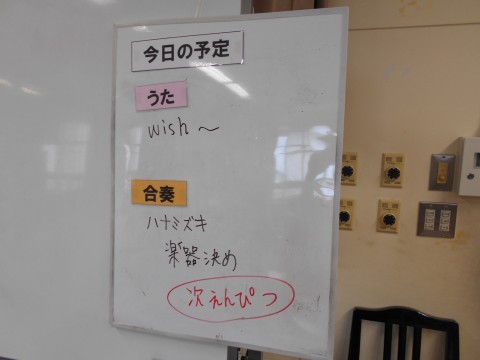 今日の予定
うた
wish～
合奏
ハナミズキ
楽器決め
次えんぴつ